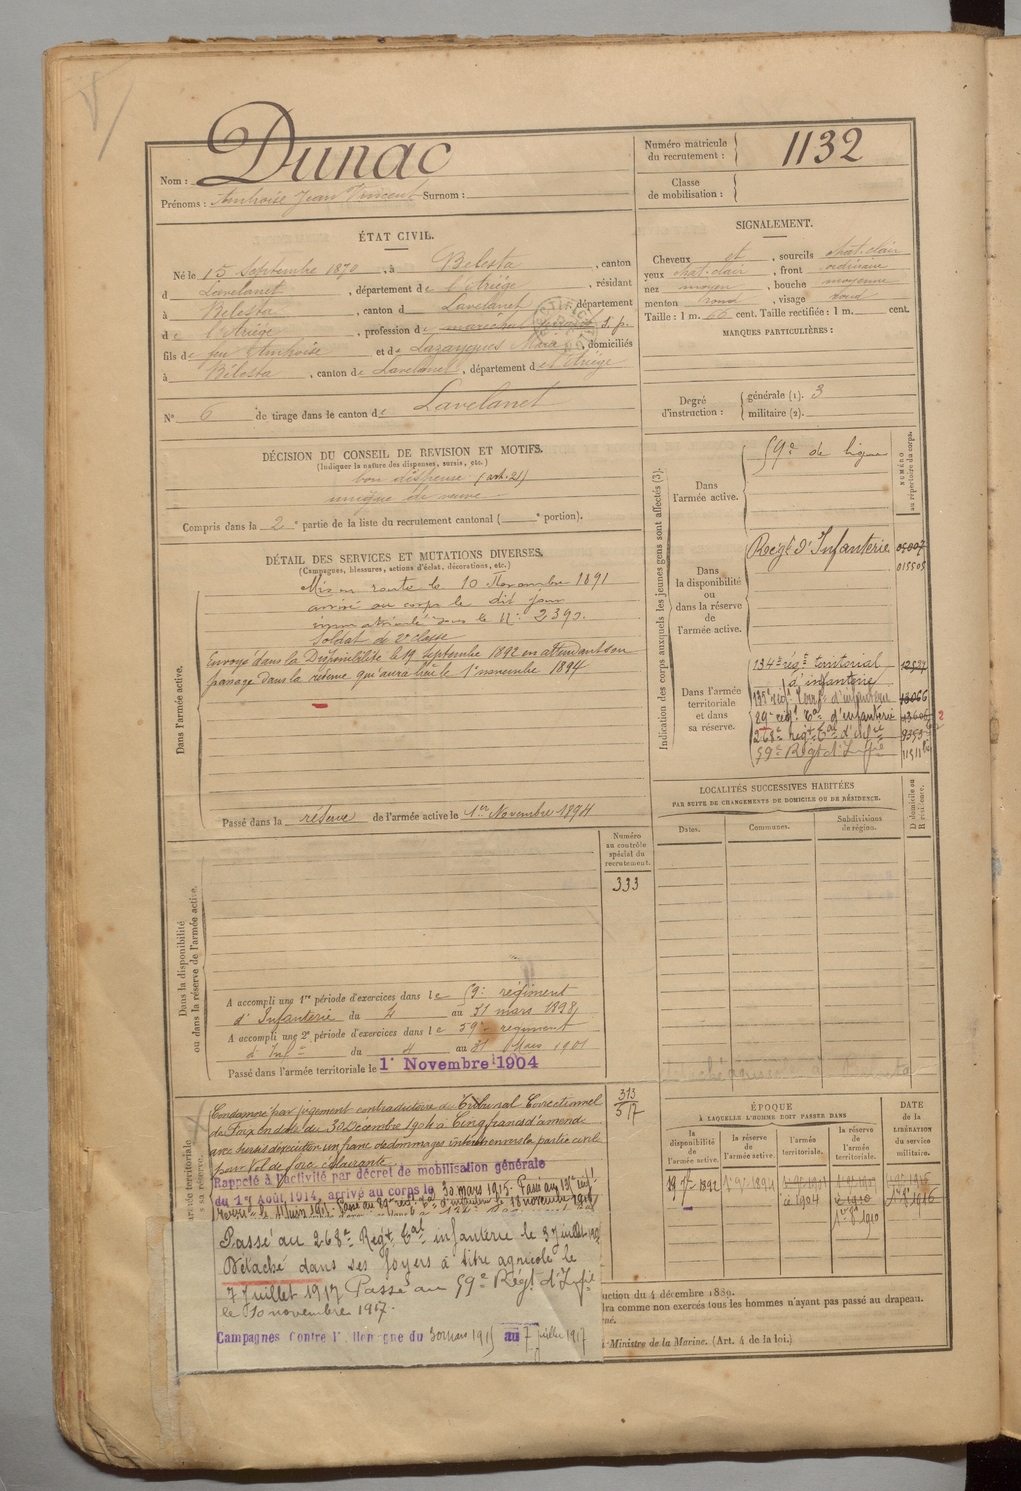 Nom : Dunac
Prénoms : Ambroise Jean Vincent Surnom :
Numéro matricule
du recrutement : 1132
Classe
de mobilisation :
ÉTAT CIVIL.
Né le 15 Septembre 1870, à Belesta, canton
d Lavelanet, département de l'Ariège, résidant
à Belesta, canton d Lavelanet département
de l'Ariège, profession de maréchal ferrant S. p.
fils de feu Ambroise et de Lazargues Mara, domiciliés
à Bélesta, canton de Lavelanet, département de l'Ariège
N° 6 de tirage dans le canton de Lavelanet
SIGNALEMENT.
Cheveux et, sourcils chat. clair
yeux chat. clair, front ordinaire
nez moyen, bouche moyenne
menton rond, visage rond
Taille : 1 m. 66 cent. Taille rectifiée : 1 m. cent.
MARQUES PARTICULIÈRES :
Degré
d'instruction :
générale (1). 3
militaire (2).
DÉCISION DU CONSEIL DE REVISION ET MOTIFS.
(Indiquer la nature des dispenses, sursis, etc.)
bon dispense (art. 21)
unique de veuve
Compris dans la 2e partie de la liste du recrutement cantonal ( e portion).
DÉTAIL DES SERVICES ET MUTATIONS DIVERSES.
(Campagnes, blessures, actions d'éclat, décorations, etc.)
Dans l'armée active.
Mis en route le 10 Novembre 1891
arrivé au corps le dit jour
immatriculé sous le N° 2390.
Soldat de 2e classe
Envoyé dans la Disponibilité le 19 septembre 1892 en attendant son
passage dans la réserve qui aura lieu le 1er novembre 1894
Passé dans la réserve de l'armée active le 1er Novembre 1894
Indication des corps auxquels les jeunes gens sont affectés (3).
NUMÉRO
au répertoire du corps.
Dans
l'armée active.
59e de ligne
Dans
la disponibilité
ou
dans la réserve
de
l'armée active.
Régt d'Infanterie 05007
015505
Dans l'armée
territoriale
et dans
sa réserve.
134e rég.t territorial
d'infanterie
135e régt terr. d'infanterie 13066
89e régt Tal d'infanterie
268e régt Tal d'infie
59e Régt d'Infie
LOCALITÉS SUCCESSIVES HABITÉES
PAR SUITE DE CHANGEMENTS DE DOMICILE OU DE RÉSIDENCE.
Dates.
Communes.
Subdivisions
de région.
D domicile ou
R résidence.
Dans la disponibilité
ou dans la réserve de l'armée active.
Numéro
au contrôle
spécial du
recrutement.
333
A accompli une 1re période d'exercices dans le 59e régiment
d'Infanterie du 4 au 31 mars 1898
A accompli une 2e période d'exercices dans le 59e régiment
d'Infie du 4 au 31 Mars 1901
Passé dans l'armée territoriale le 1er Novembre 1904
313
517
Condamné par jugement contradictoire du Tribunal Correctionnel
de Foix en date du 30 Décembre 1904 à Cinq francs d'amende
avec sursis d'exécution un franc de dommages intérêts envers la partie civile
pour vol de force éclairante
Rappelé à l'activité par décret de mobilisation générale
du 1er Août 1914, arrivé au corps le 30 mars 1915. Passé au 135e régt
Passé au 268e Régt Tal infanterie le 3 juillet
Détaché dans ses foyers à titre agricole le
7 Juillet 1917 Passé au 59e Régt d'Infie
le 10 novembre 1917.
Campagnes Contre l'Allemagne du 30 mars 1915 au 7 juillet 1917
ÉPOQUE
À LAQUELLE L'HOMME DOIT PASSER DANS
la
disponibilité
de
l'armée active.
la réserve
de
l'armée active.
l'armée
territoriale.
la réserve
de
l'armée
territoriale.
DATE
de la
LIBÉRATION
du service
militaire.
uction du 4 décembre 1889.
dra comme non exercés tous les hommes n'ayant pas passé au drapeau.
Ministre de la Marine. (Art. 4 de la loi.)